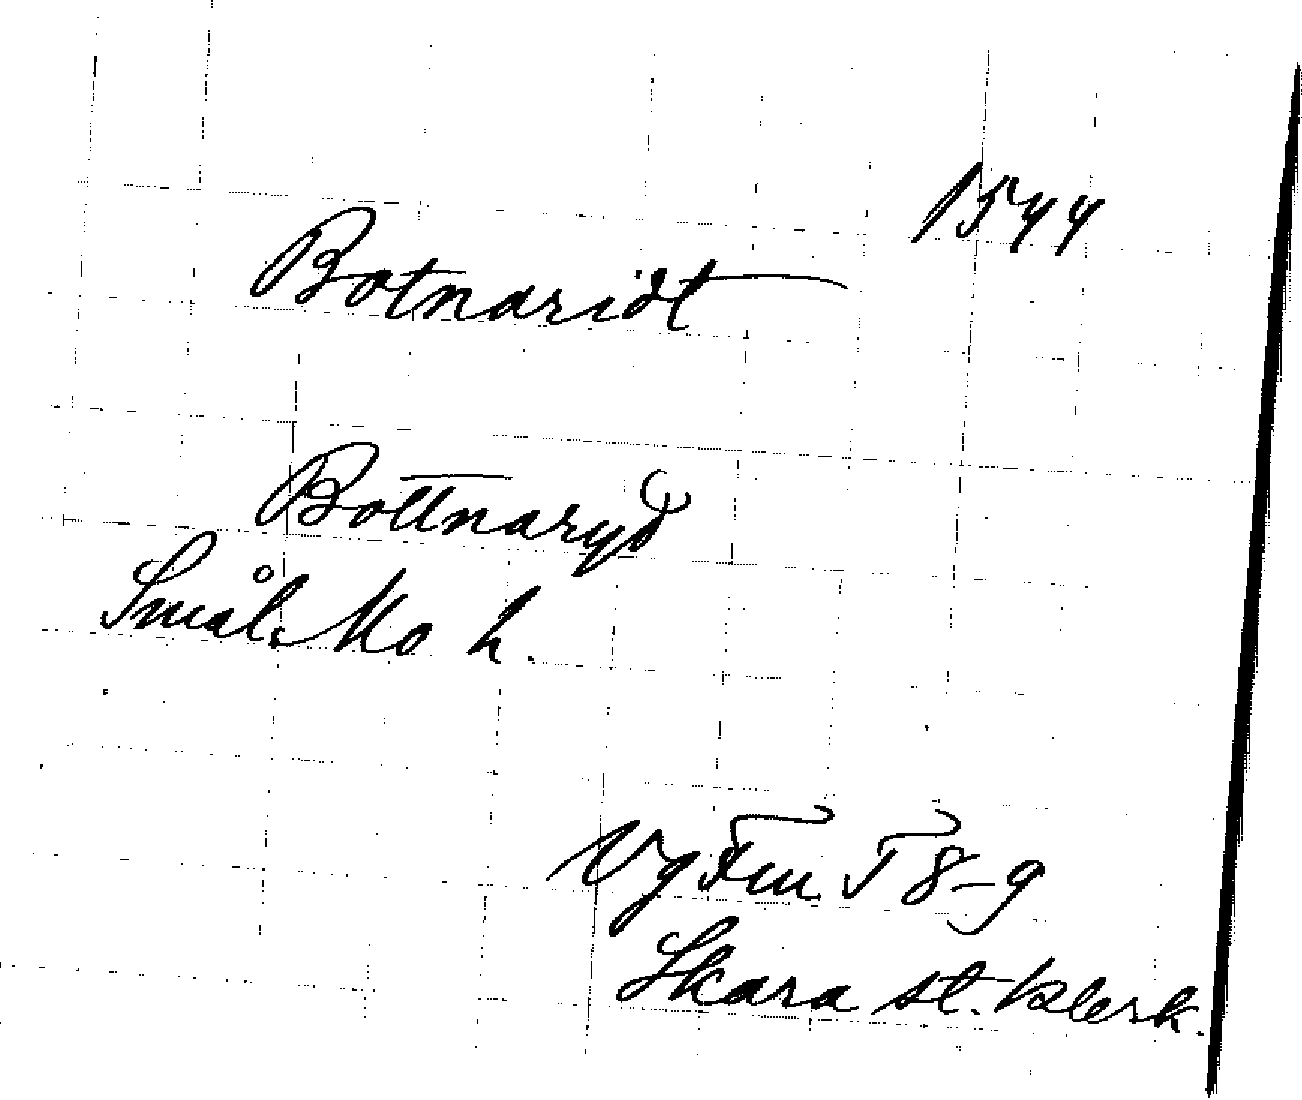 1544
Botnaridt
Bottnaryd
Smål. Mo h.
Vg Fm I 8-9
Skara st. klerk.